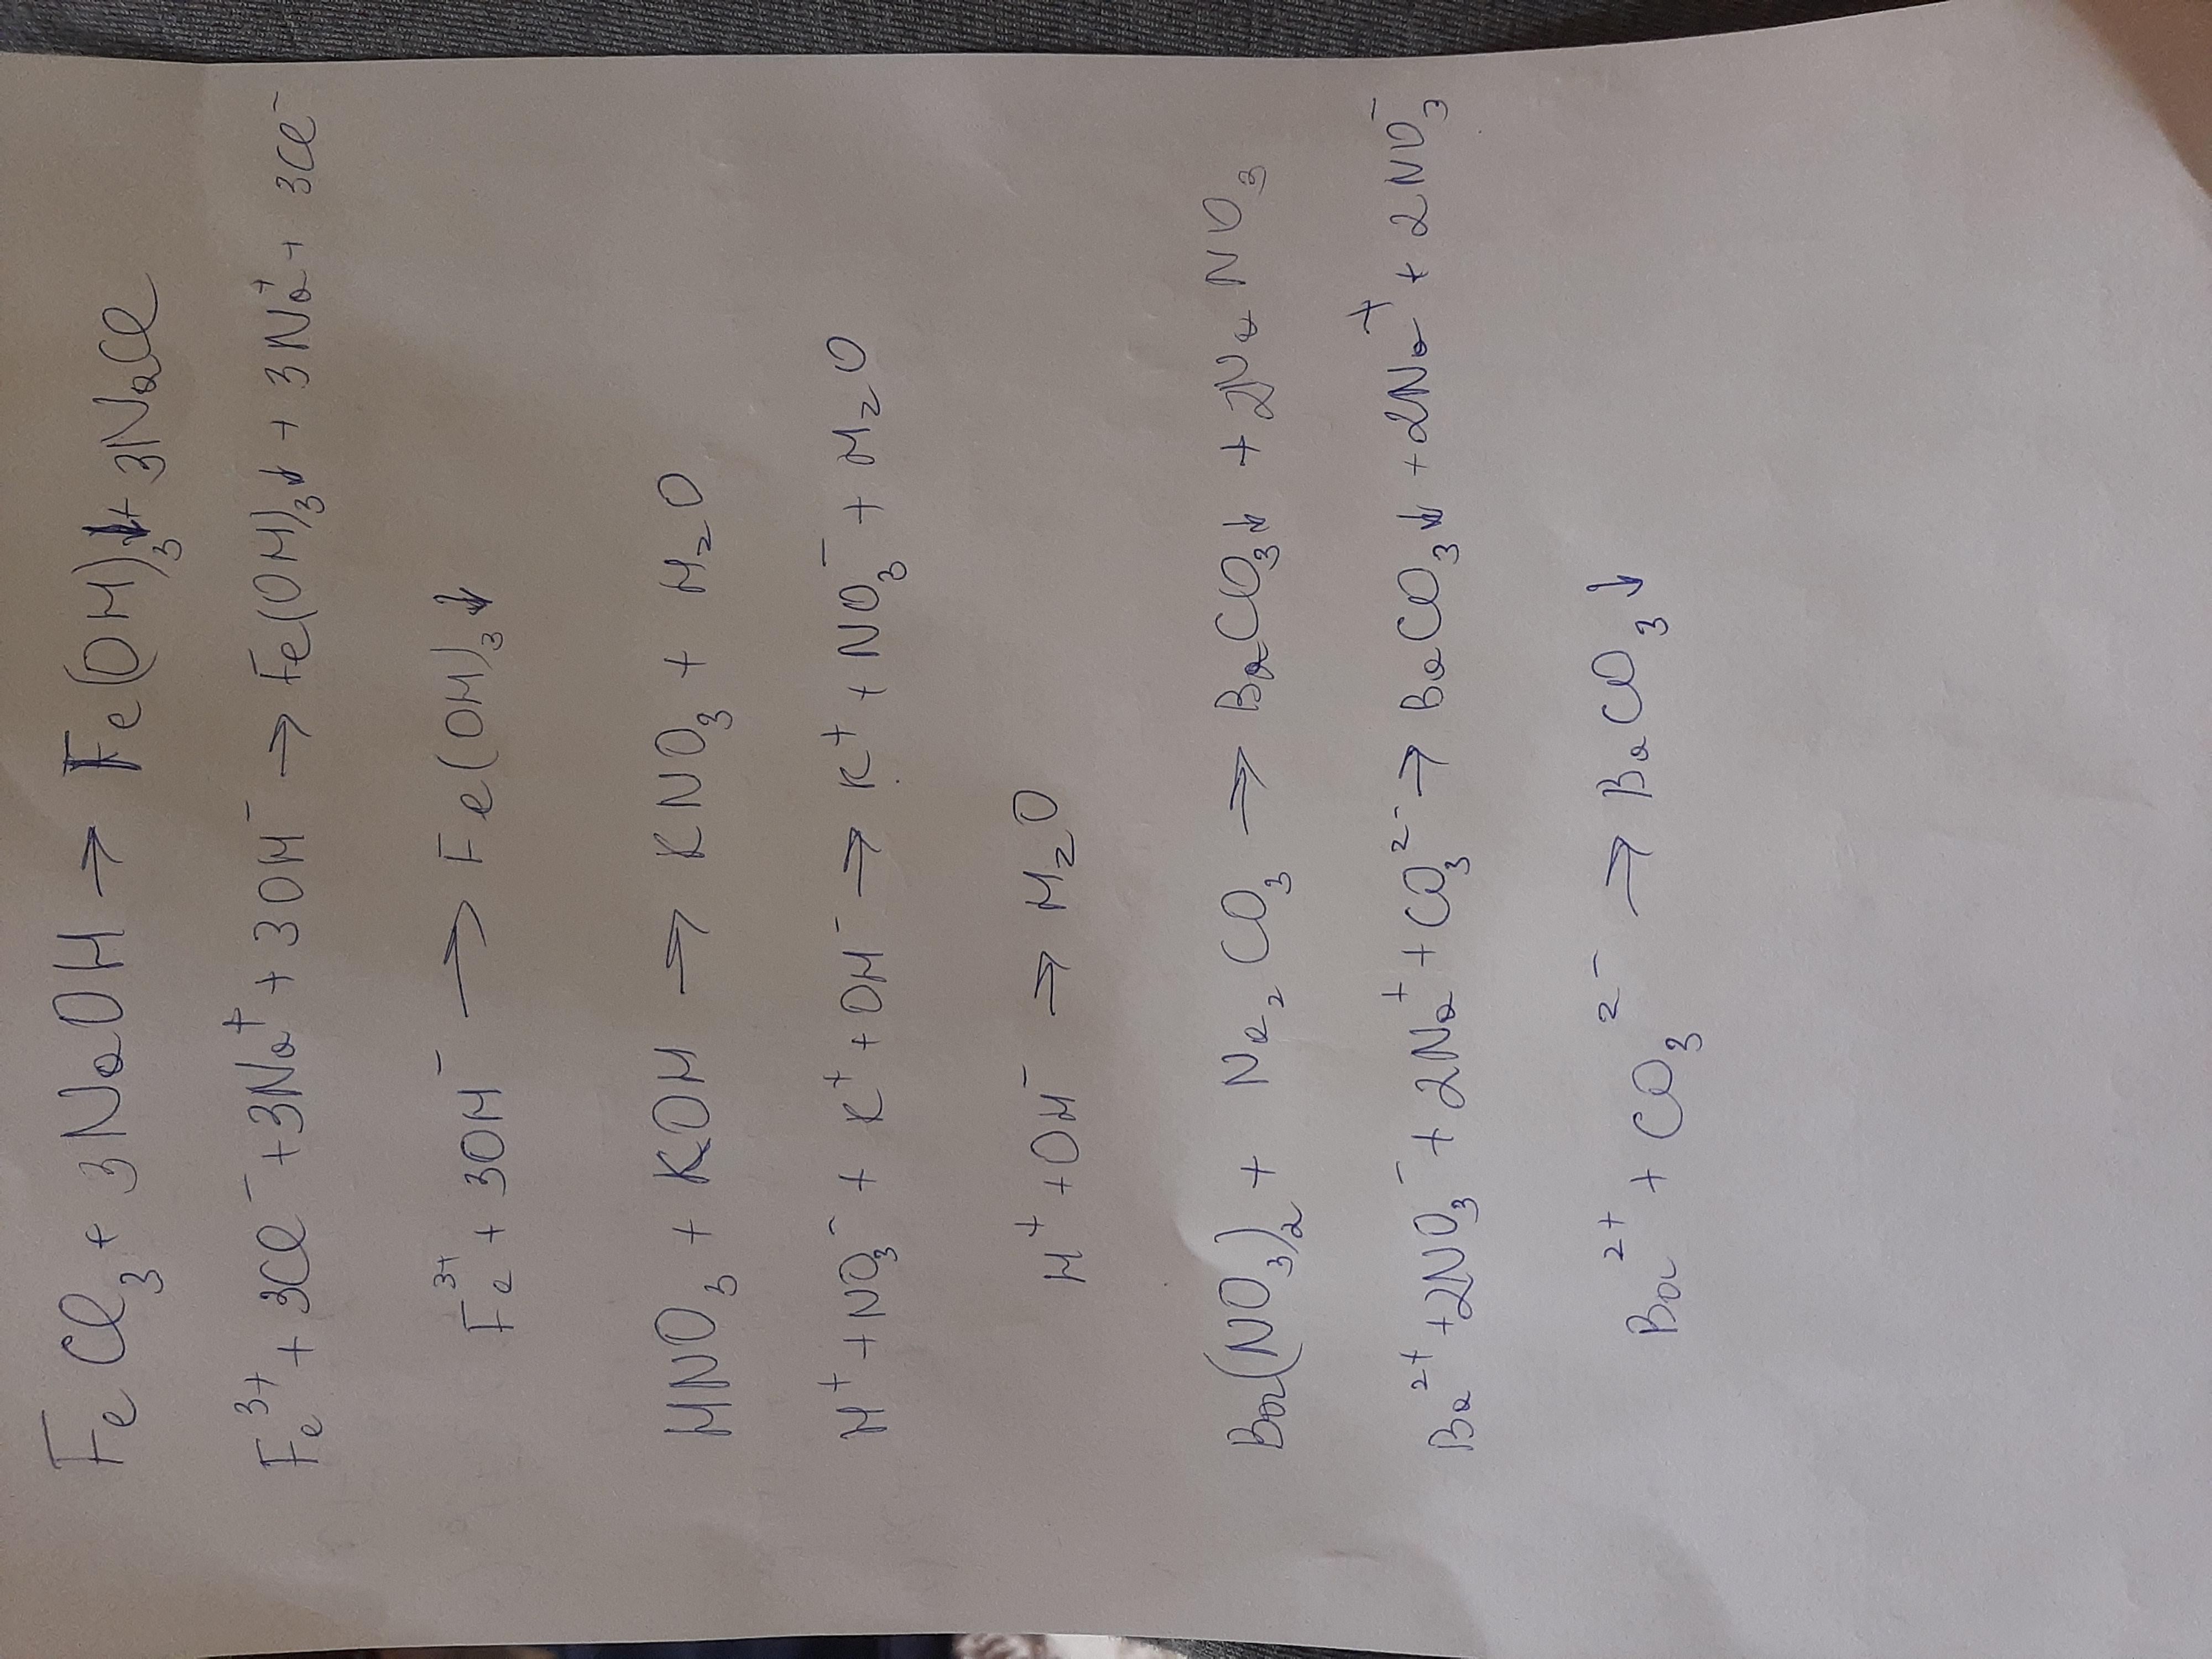 FeCl₃ + 3NaOH → Fe(OH)₃↓ + 3NaCl
Fe³⁺ + 3Cl⁻ + 3Na⁺ + 3OH⁻ → Fe(OH)₃↓ + 3Na⁺ + 3Cl⁻
Fe³⁺ + 3OH⁻ → Fe(OH)₃↓
HNO₃ + KOH → KNO₃ + H₂O
H⁺ + NO₃⁻ + K⁺ + OH⁻ → K⁺ + NO₃⁻ + H₂O
H⁺ + OH⁻ → H₂O
Ba(NO₃)₂ + Na₂CO₃ → BaCO₃↓ + 2NaNO₃
Ba²⁺ + 2NO₃⁻ + 2Na⁺ + CO₃²⁻ → BaCO₃↓ + 2Na⁺ + 2NO₃⁻
Ba²⁺ + CO₃²⁻ → BaCO₃↓